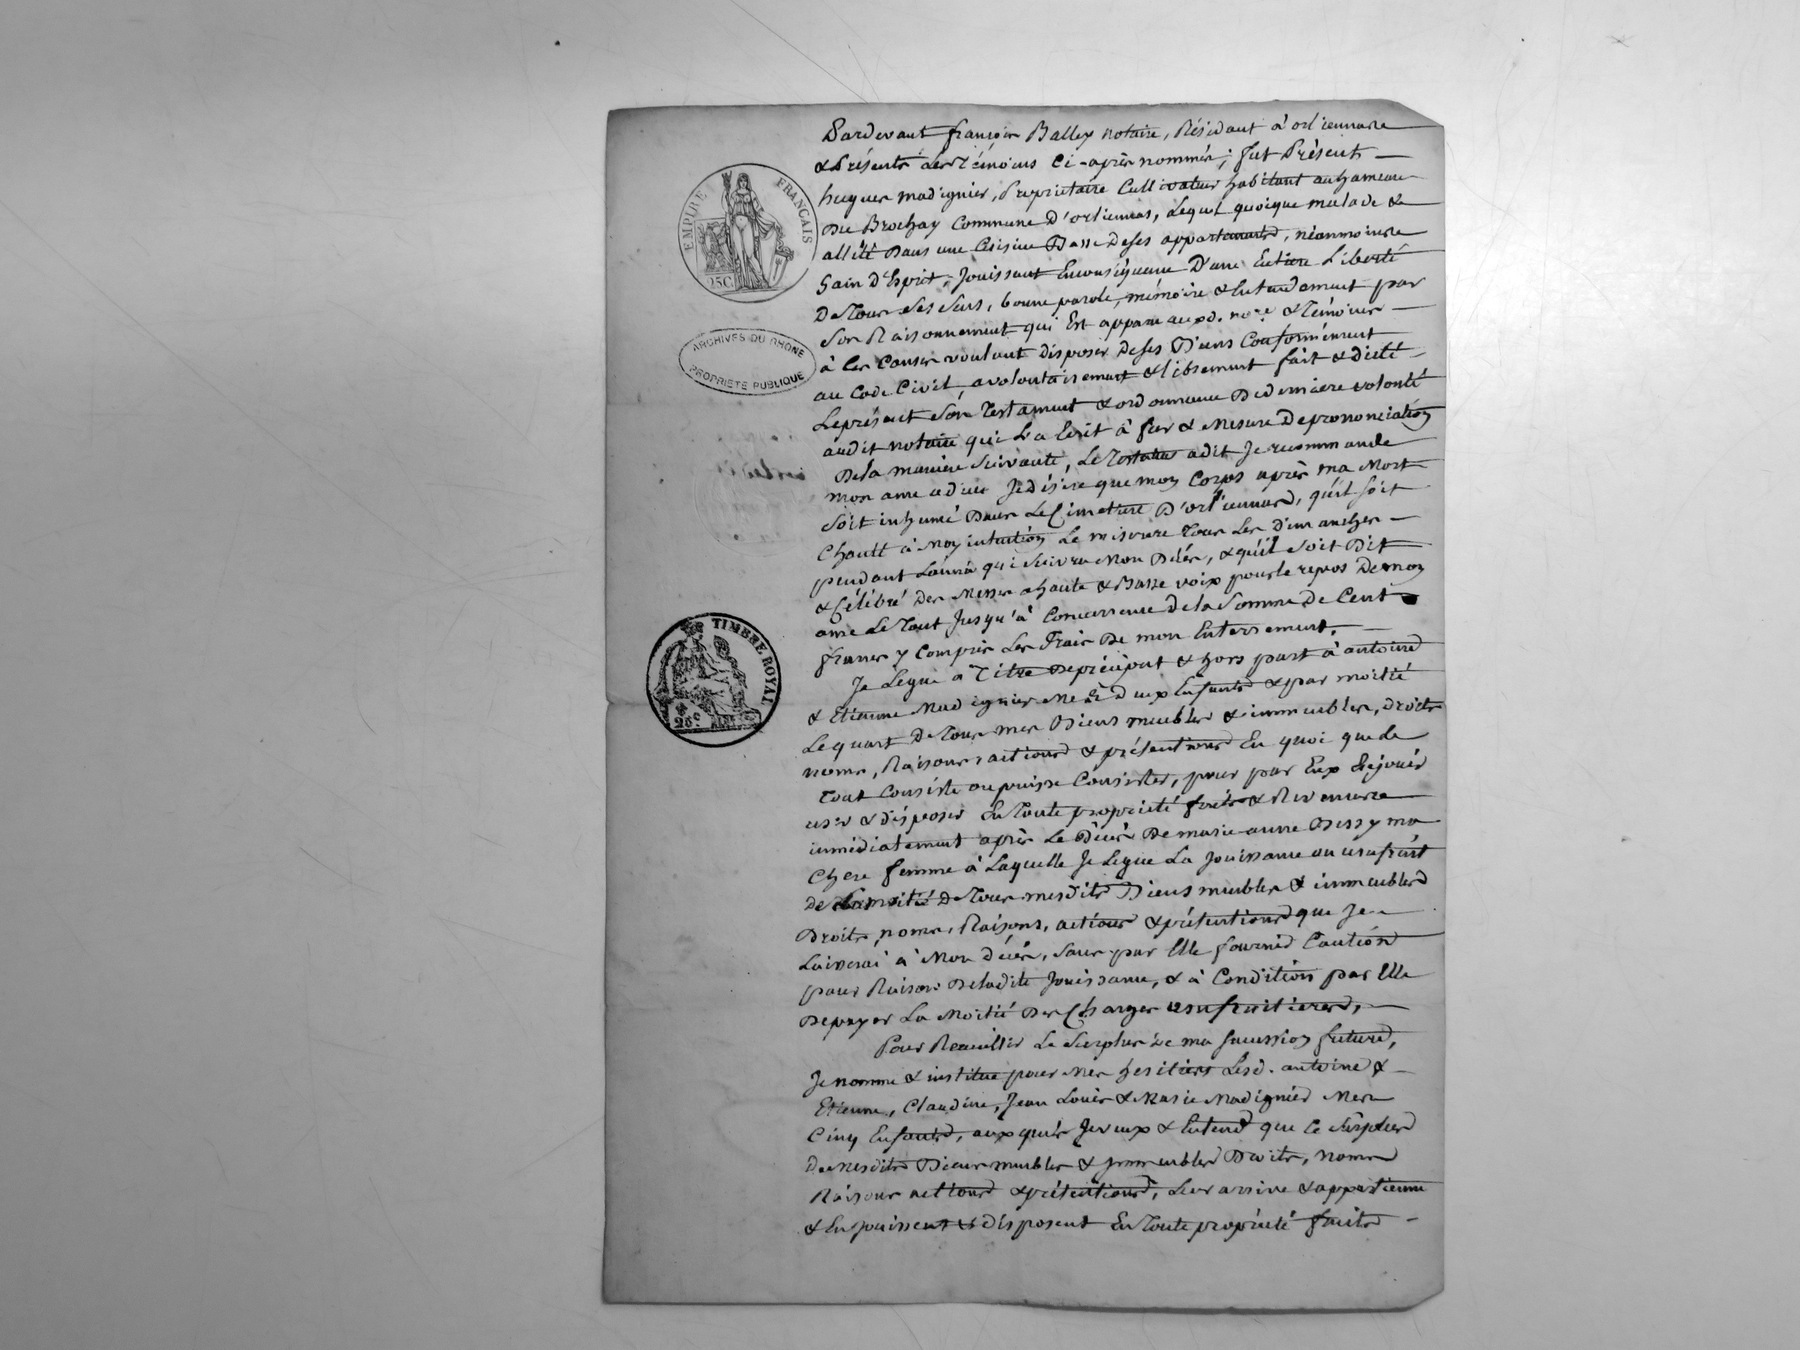 Pardevant françois Balley notaire, Résidant à orliennas
& Présents les Témoins Ci-après nommés; fut Présent
hugues madignier, Propriétaire Cultivateur habitant au hameau
Du Brochay Commune D'orliennas, Lequel quoique malade &
allité Dans une Cuisine Basse de ses appartements, néanmoins
Sain D'Esprit, Jouissant En conséquence D'une Entière Liberté
De Tous ses sens, bonne parole, mémoire & Entendement par
Son Raisonnement qui Est apparu auxd. nore & Témoins
à Ces Causes voulant disposer de ses Biens Conformément
au Code Civil, a volontairement & librement fait & dicté
Le présent Son Testament & ordonnance De dernière volonté
audit notaire qui l'a Ecrit à fur & Mesure De prononciation
De la manière Suivante, Le Testateur a dit Je recommande
mon ame a dieu Je désire que mon Corps après ma Mort
Soit inhumé Dans Le Cimetiere D'orliennas, qu'il soit
Chanté à Mon intention Le miserere Tous Les Dimanches
pendant L'année qui Suivra Mon Décès, & qu'il soit Dit
& Célébré Des Messes a haute & Basse voix pour le repos De mon
ame Le Tout Jusqu'à Concurrence De la Somme De Cent
francs y Compris Les Frais De mon Enterrement,
Je Legue a Titre De préciput & hors part à antoine
& Etienne Madignier Mes Deux Enfants & par moitié
Le quart De Tous mes Biens meubles & immeubles, droits
noms, Raisons, actions & prétentions En quoi que Le
Tout Consiste ou puisse Consister, pour par Eux En jouir
user & disposer En Toute propriété fruits & Revenus
immédiatement après Le Décès De marie anne Bessy ma
Chere femme à Laquelle Je Legue La Jouissance ou usufruit
de La moitié De Tous mesdits Biens meubles & immeubles
Droits, noms, Raisons, actions & prétentions que Je
Laisserai à Mon décès, sans par Elle fournir Caution
pour Raison De ladite Jouissance, & à Condition par Elle
De payer La Moitié Des Charges usufruitieres,
Pour Recueillir Le Surplus de ma succession future,
Je nomme & institue pour Mes heritiers Lesd. antoine &
Etienne, Claudine, Jean Louis & Marie Madignier Mes
Cinq Enfants, auxquels Je veux & Entend que Ce Surplus
De Mesdits Biens meubles & immeubles Droits, noms
Raisons actions & prétentions, Leur arrive & appartienne
& En jouissent & disposent En Toute propriété fruits
EMPIRE FRANÇAIS
25C
ARCHIVES DU RHONE
PROPRIETE PUBLIQUE
TIMBRE ROYAL